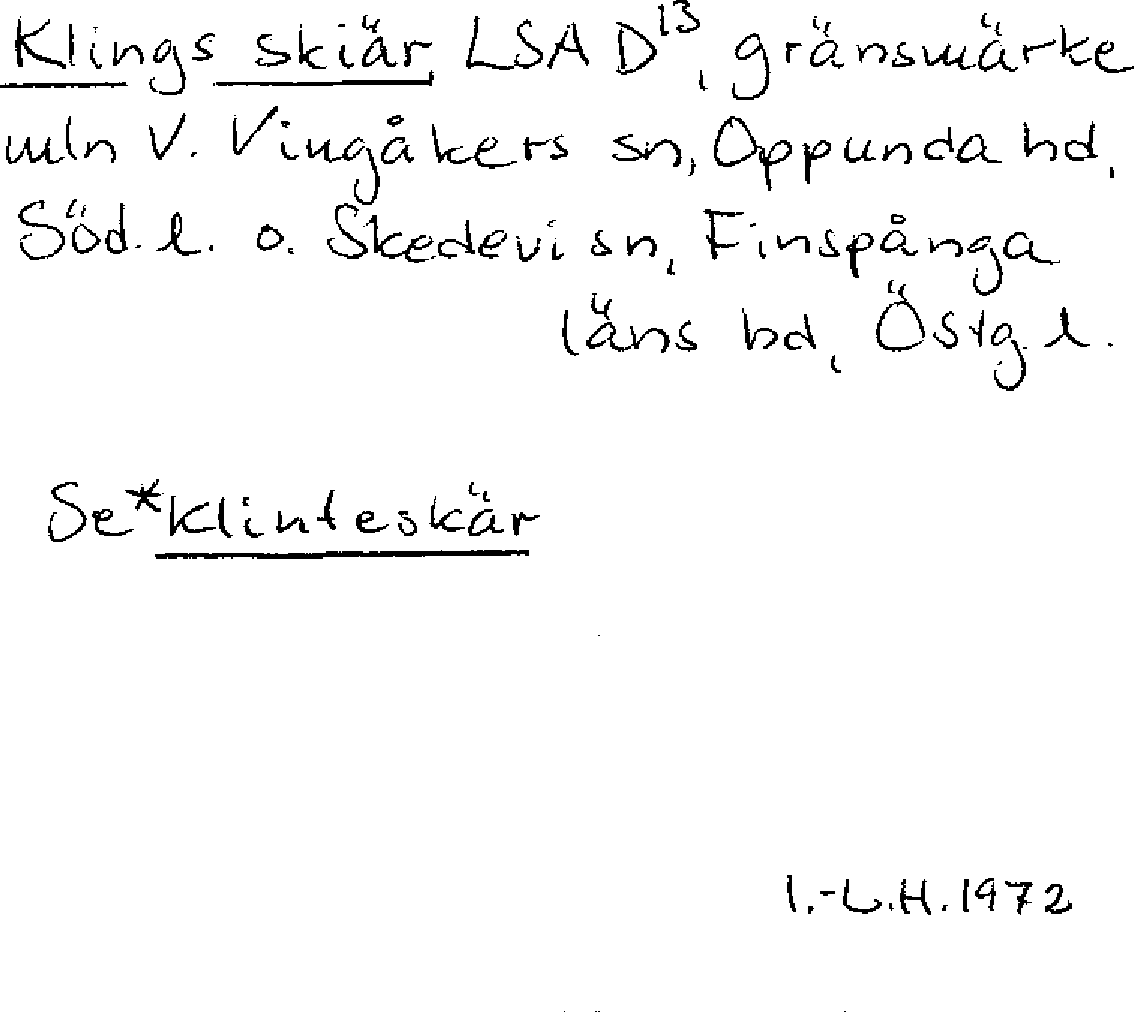 Klings skiär LSA D¹³, gränsmärke
mln V. Vingåkers sn, Oppunda hd,
Söd. l. o. Skedevi sn, Finspånga
läns hd, Östg. l.
Se *Klinteskär
I.-L.H. 1972